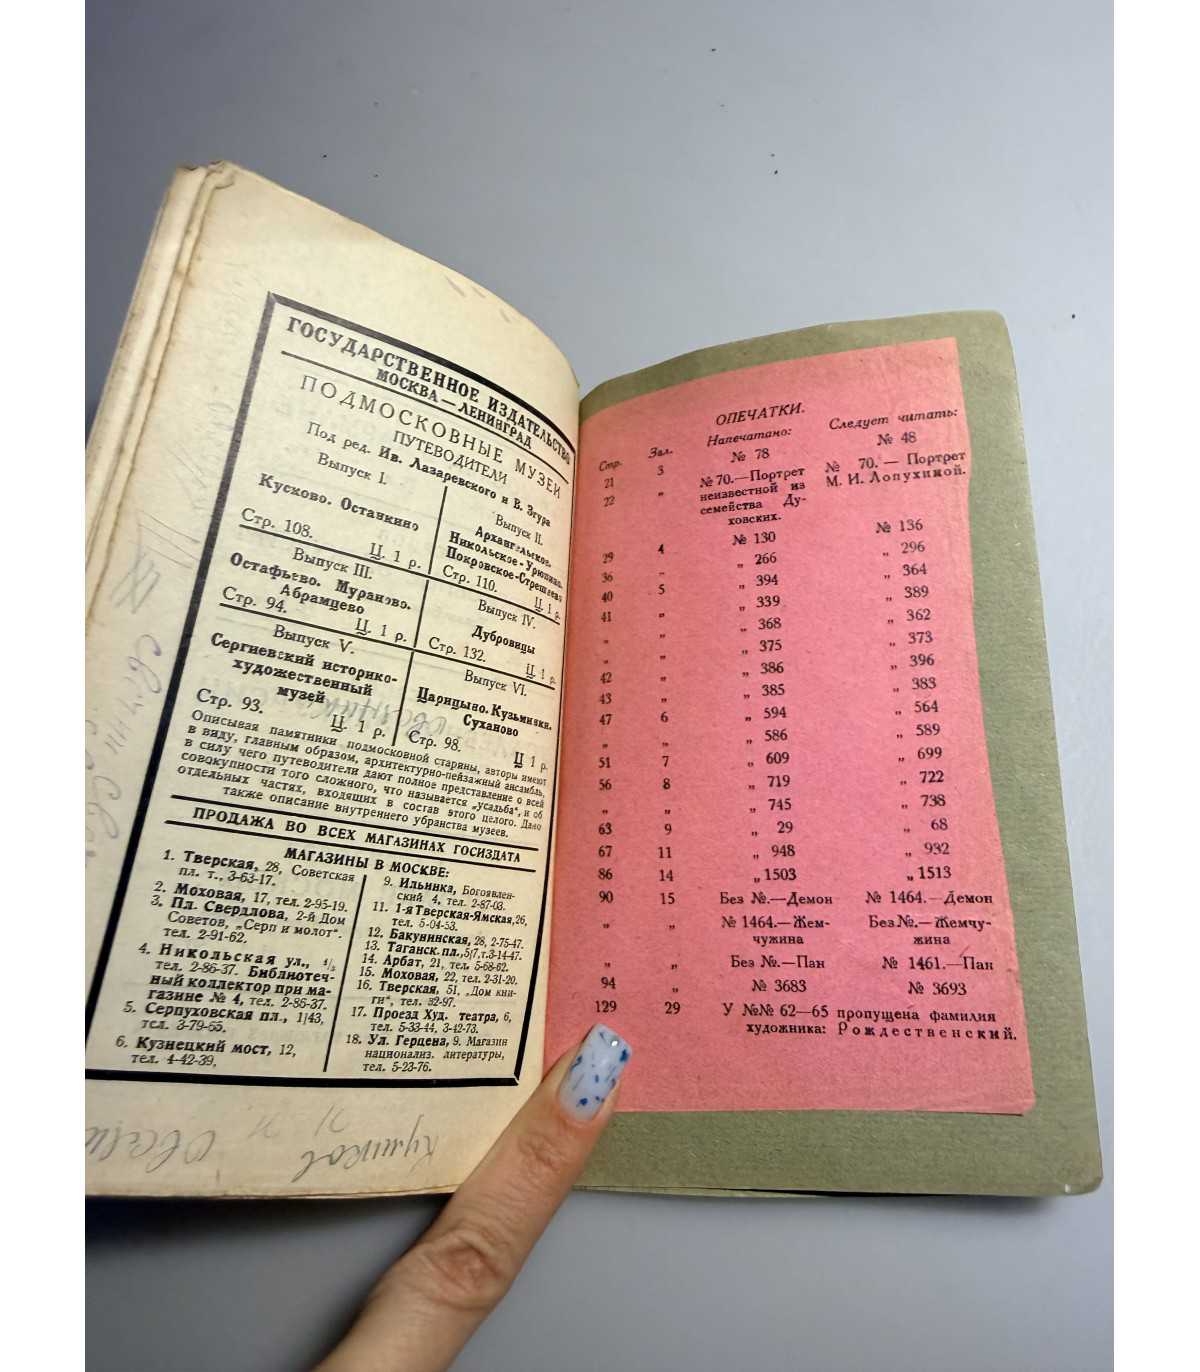 ГОСУДАРСТВЕННОЕ ИЗДАТЕЛЬСТВО
МОСКВА — ЛЕНИНГРАД
ПОДМОСКОВНЫЕ МУЗЕИ
ПУТЕВОДИТЕЛИ
Под ред. Ив. Лазаревского и В. Згура
Выпуск I.
Кусково. Останкино
Стр. 108. Ц. 1 р.
Выпуск II.
Архангельское.
Никольское-Урюпино.
Покровское-Стрешнево
Стр. 110. Ц. 1 р.
Выпуск III.
Остафьево. Мураново.
Абрамцево
Стр. 94. Ц. 1 р.
Выпуск IV.
Дубровицы
Стр. 132. Ц. 1 р.
Выпуск V.
Сергиевский историко-
художественный
музей
Стр. 93. Ц. 1 р.
Выпуск VI.
Царицыно. Кузьминки.
Суханово
Стр. 98. Ц 1 р.
Описывая памятники подмосковной старины, авторы имеют
в виду, главным образом, архитектурно-пейзажный ансамбль,
в силу чего путеводители дают полное представление о всей
совокупности того сложного, что называется „усадьба", и об
отдельных частях, входящих в состав этого целого. Дано
также описание внутреннего убранства музеев.
ПРОДАЖА ВО ВСЕХ МАГАЗИНАХ ГОСИЗДАТА
МАГАЗИНЫ В МОСКВЕ:
1. Тверская, 28, Советская
пл. т., 3-63-17.
2. Моховая, 17, тел. 2-95-19.
3. Пл. Свердлова, 2-й Дом
Советов, „Серп и молот".
тел. 2-91-62.
4. Никольская ул., 1/3
тел. 2-86-37. Библиотеч-
ный коллектор при ма-
газине № 4, тел. 2-86-37.
5. Серпуховская пл., 1/43,
тел. 3-79-65.
6. Кузнецкий мост, 12,
тел. 4-42-39.
9. Ильинка, Богоявлен-
ский 4, тел. 2-87-03.
11. 1-я Тверская-Ямская, 26,
тел. 5-04-53.
12. Бакунинская, 28, 2-75-47.
13. Таганск. пл., 5/7, т. 3-14-47.
14. Арбат, 21, тел. 5-68-62.
15. Моховая, 22, тел. 2-31-20.
16. Тверская, 51, „Дом кни-
ги", тел. 32-97.
17. Проезд Худ. театра, 6,
тел. 5-33-44, 3-42-73.
18. Ул. Герцена, 9. Магазин
национализ. литературы,
тел. 5-23-76.
ОПЕЧАТКИ.
Стр. Зал. Напечатано: Следует читать:
21 3 № 78 № 48
22 „ № 70.—Портрет № 70. — Портрет
неизвестной из М. И. Лопухиной.
семейства Ду-
ховских.
29 4 № 130 № 136
36 „ „ 266 „ 296
40 5 „ 394 „ 364
41 „ „ 339 „ 389
„ „ „ 368 „ 362
„ „ „ 375 „ 373
42 „ „ 386 „ 396
43 „ „ 385 „ 383
47 6 „ 594 „ 564
„ „ „ 586 „ 589
51 7 „ 609 „ 699
56 8 „ 719 „ 722
„ „ „ 745 „ 738
63 9 „ 29 „ 68
67 11 „ 948 „ 932
86 14 „ 1503 „ 1513
90 15 Без №.—Демон № 1464.—Демон
„ „ № 1464.—Жем- Без №.—Жемчу-
чужина жина
„ „ Без №.—Пан № 1461.—Пан
94 „ № 3683 № 3693
129 29 У №№ 62—65 пропущена фамилия
художника: Рождественский.